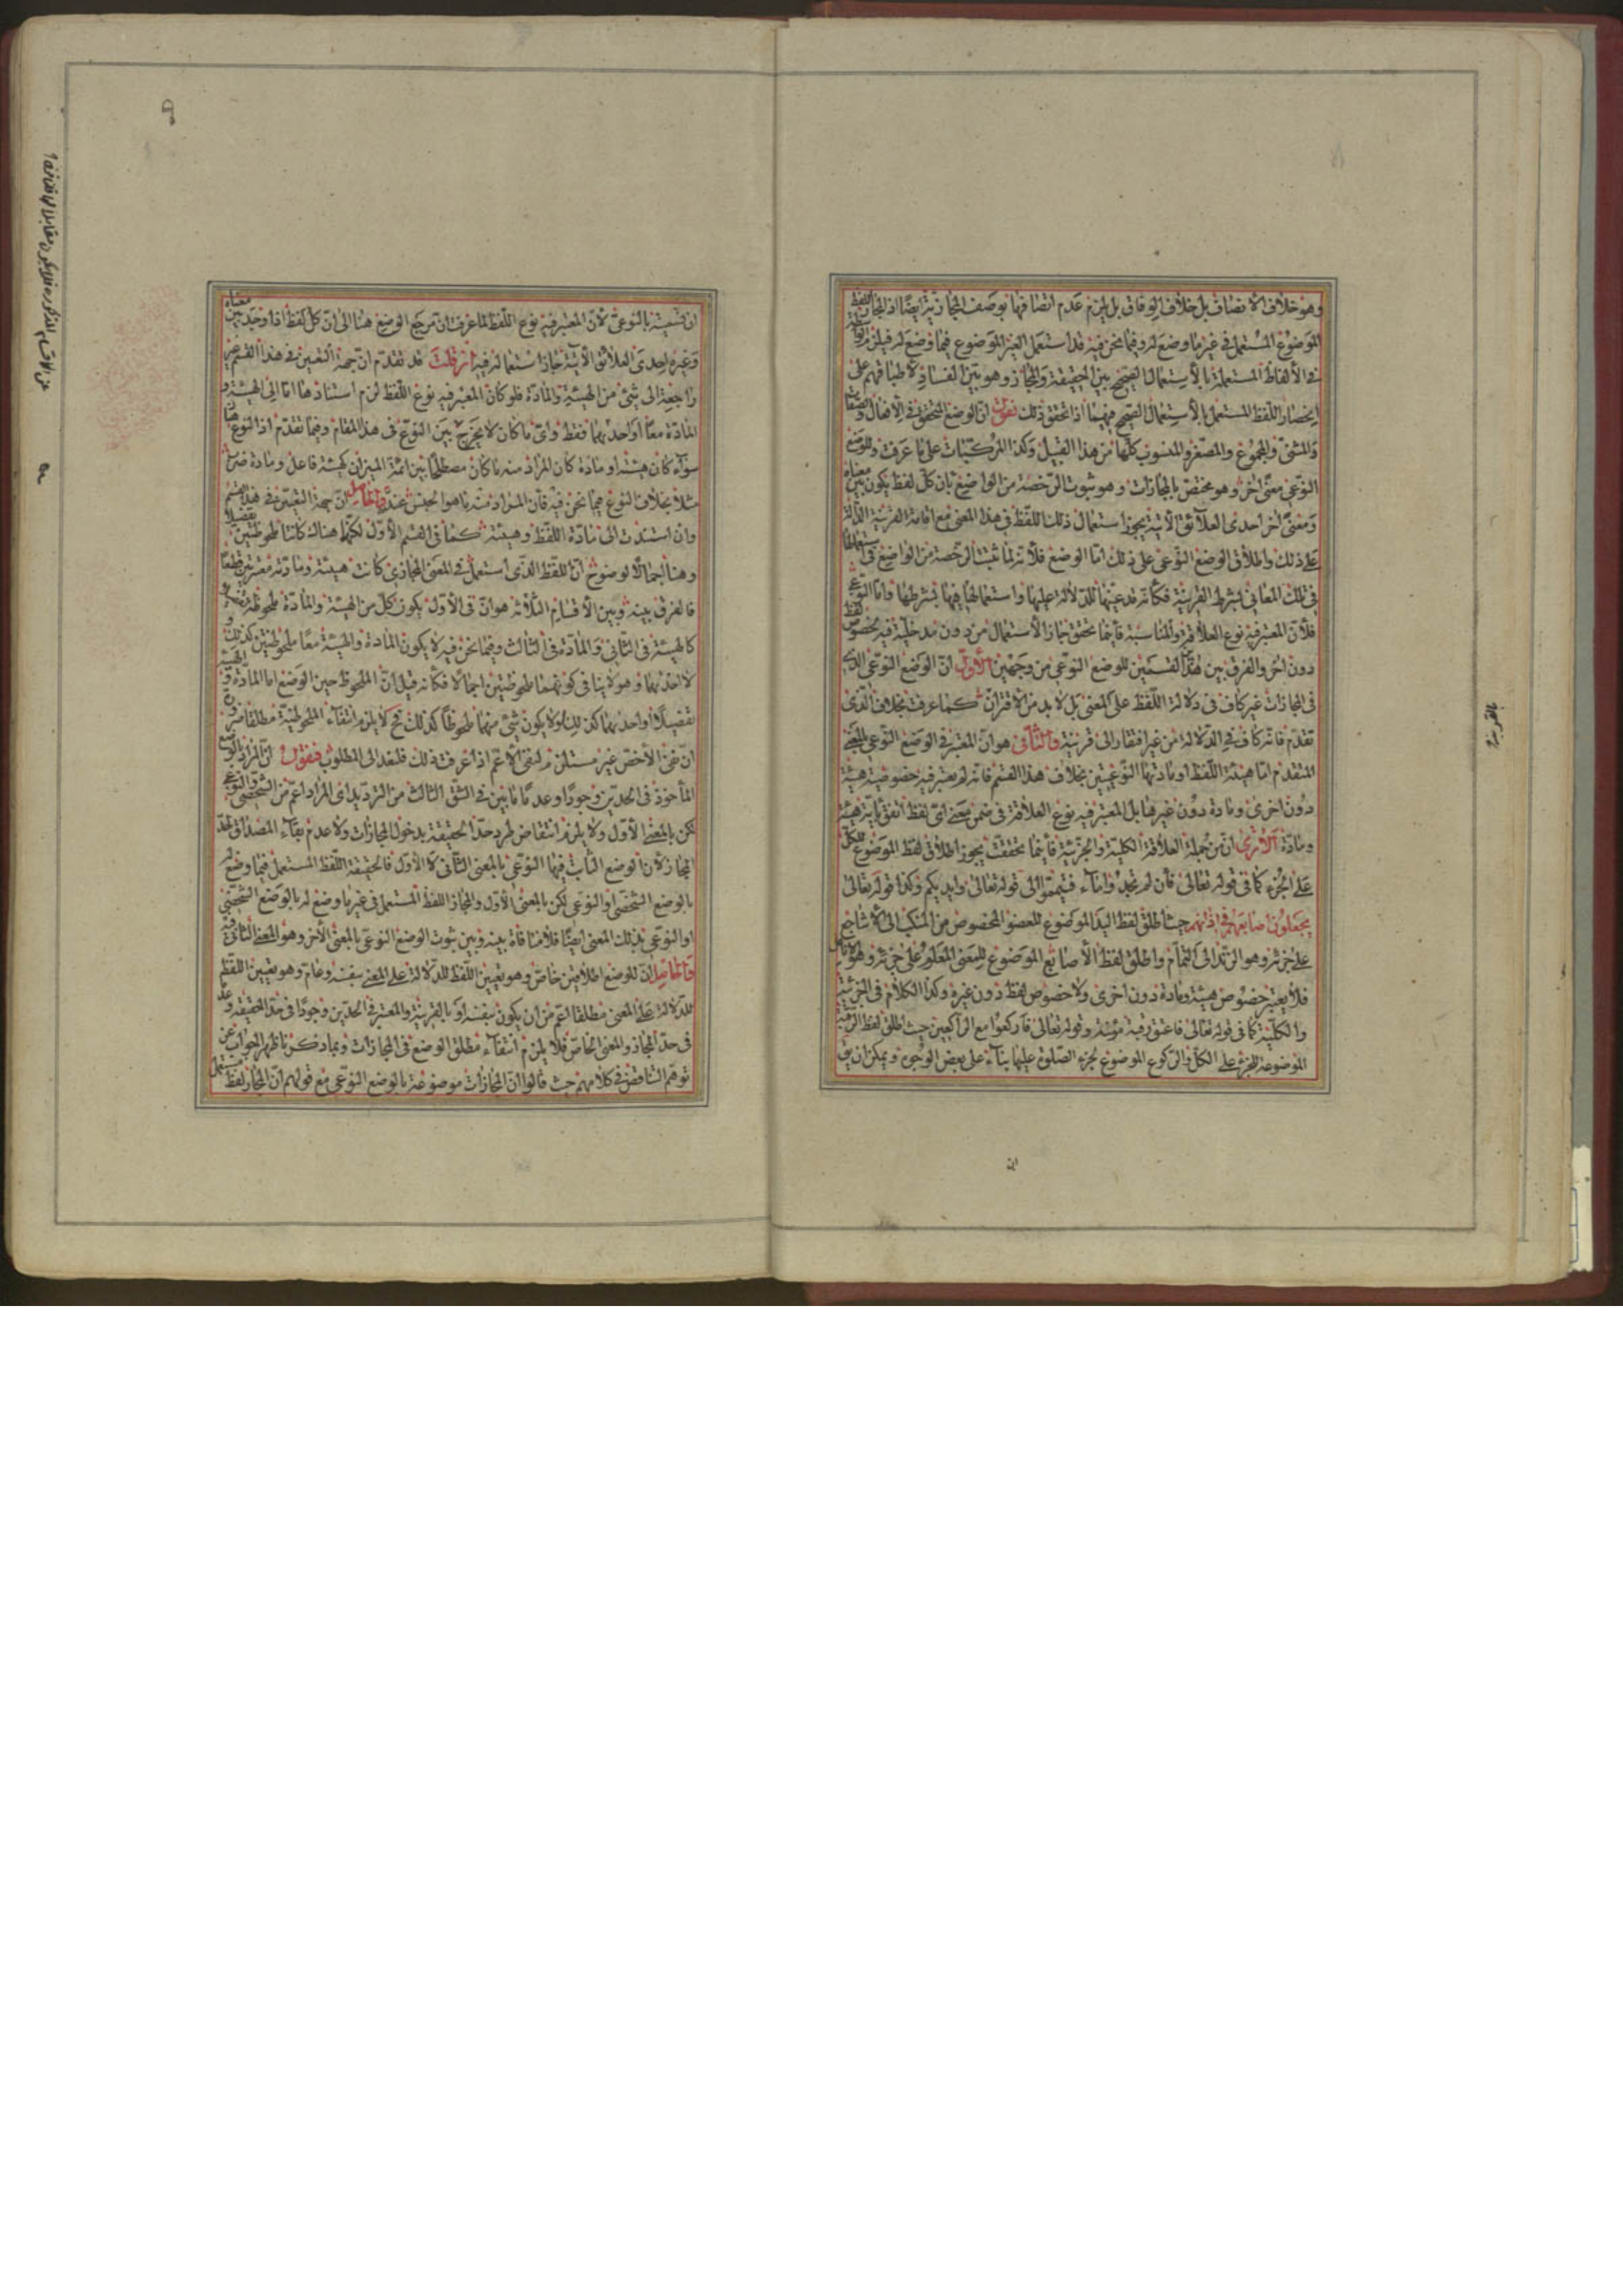 وهو خلاف الانصاف بل خلاف الوفاق بل يلزم عدم اتصافها بوصف المجازية ايضا اذ المجاز اللفظ
الموضوع المستعمل في غير ما وضع له وفيما نحن فيه قد استعمل الغير الموضوع فيما وضع له فيلزم
في الألفاظ المستعملة بالاستعمال الصحيح بين الحقيقة والمجاز وهو بين الفساد لاطباقهم على
انحصار اللفظ المستعمل بالاستعمال الصحيح فيهما اذا تحقق ذلك نقول ان الوضع المتحقق في الافعال والصفات
والمثنى والمجموع والمصغر والمنسوب كلها من هذا القبيل وكذا المركبات على ما عرفت وللوضع
النوعي معنى اخر وهو مختص بالمجازات وهو ثبوت الرخصة من الواضع بان كل لفظ يكون بين معناه
ومعنى اخر احدى العلائق الاتية يجوز استعمال ذلك اللفظ في هذا المعنى مع اقامة القرينة الدالة
على ذلك واطلاق الوضع النوعي على ذلك اما الوضع فلانه لما ثبت الرخصة من الواضع في استعمالها
في تلك المعاني بشرط القرينة فكأنه قد عينها للدلالة عليها واستعمالها فيها بشرطها واما النوعي
فلان المعتبر فيه نوع العلاقة والمناسبة فأينما تحقق جاز الاستعمال من دون مدخلية فيه لخصوص لفظ
دون اخر والفرق بين هذا القسمين للوضع النوعي من وجهين الأول ان الوضع النوعي الذي
في المجازات غير كاف في دلالة اللفظ على المعنى بل لا بد من الاقتران كما عرفت بخلاف الذي
تقدم فانه كاف في الدلالة من غير افتقار الى قرينة والثاني هو ان المعتبر في الوضع النوعي بالمعنى
المتقدم اما هيئة اللفظ او مادتها النوعيتين بخلاف هذا القسم فانه لم يعتبر فيه خصوصية هيئة
دون اخرى ومادة دون غيرها بل المعتبر فيه نوع العلاقة في ضمن معنى اي لفظ اتفق باية هيئة
ومادة الا ترى ان من جملة العلاقة الكلية والجزئية فأينما تحققت يجوز اطلاق لفظ الموضوع للكل
على الجزء كما في قوله تعالى فان لم تجدوا ماء فتيمموا الى قوله تعالى وايديكم وكذا قوله تعالى
يجعلون اصابعهم في اذانهم حيث اطلق لفظ اليد الموضوع للعضو المخصوص من المنكب الى الاشاجع
على جزئه وهو الزند الى التمام واطلق لفظ الأصابع الموضوع للمعنى المعلوم على جزئه وهو الانامل
فلا يعتبر خصوص هيئة ومادة دون اخرى ولا خصوص لفظ دون غيره وكذا الكلام في الجزئية
والكلية كما في قوله تعالى فاعتق رقبة مؤمنة وقوله تعالى فاركعوا مع الراكعين حيث اطلق لفظ الرقبة
الموضوعة للجزء على الكل والركوع الموضوع لجزء الصلوة عليها بناء على بعض الوجوه ويمكن ان يق
ان
بالقرينة
٩
ان تسميته بالنوعي لأن المعتبر فيه نوع اللفظ لما عرفت ان مرجع الوضع هنا الى ان كل لفظ اذا وجد بين معناه
وغيره احدى العلائق الآتية جاز استعماله فيه ان قلت قد تقدم ان جهة التعيين في هذا القسم غير
راجعة الى شيئ من الهيئة والمادة فلو كان المعتبر فيه نوع اللفظ لزم استنادها اما الى الهيئة و
المادة معا او احدهما فقط واي ما كان لا يخرج بين النوع في هذا المقام وفيما تقدم اذ النوع هنا
سواء كان هيئة او مادة كان المراد منه ما كان مصطلحا بين ائمة الميزان كهيئة فاعل ومادة ضرب
مثلا بخلاف النوع فيما نحن فيه فان المراد منه ما هو الجنس عند والحاصل ان جهة التعيين في هذا القسم
وان استندت الى مادة اللفظ وهيئته كما في القسم الأول لكنها هناك كانتا ملحوظتين تفصيلا
وهنا اجمالا لوضوح ان للفظ الذي استعمل في المعنى المجازي كانت هيئة ومادة معتبرتين قطعا
فالفرق بينه وبين الأقسام الثلاثه هو ان في الأول يكون كل من الهيئة والمادة ملحوظة
كالهيئة في الثاني والمادة في الثالث وفيما نحن فيه لا يكون المادة والهيئة معا ملحوظتين كذلك و
لا احدهما وهو لا ينافي كونهما ملحوظتين اجمالا فكأنه قيل ان الملحوظ حين الوضع اما المادة والهيئة
تفصيلا او احدهما كذلك او لا يكون شيئ منهما ملحوظا كذلك فح لا يلزم انتفاء الملحوظية مطلقا ضرورة
ان نفي الأخص غير مستلزم لنفي الأعم اذا عرفت ذلك فلنعد الى المطلوب فنقول ان المراد بالوضع
المأخوذ في الحدين وجودا وعدما ما بين في الشق الثالث من الترديد اي المراد اعم من الشخصي والنوعي
لكن بالمعنى الأول ولا يلزم انتقاض طرد حد الحقيقة بدخول المجازات ولا عدم بقاء المصداق لحد
المجاز لان الوضع الثابت فيها النوعي بالمعنى الثاني لا الأول فالحقيقة اللفظ المستعمل فيما وضع له
بالوضع الشخصي او النوعي لكن بالمعنى الأول والمجاز اللفظ المستعمل في غير ما وضع له بالوضع الشخصي
او النوعي بذلك المعنى ايضا فلا منافاة بينه وبين ثبوت الوضع النوعي بالمعنى الأخر وهو المعنى الثاني فيه
والحاصل ان للوضع اطلاقين خاص وهو تعيين اللفظ للدلالة على المعنى بنفسه وعام وهو تعيين اللفظ
للدلالة على المعنى مطلقا اعم من ان يكون بنفسه او بالقرينة والمعتبر في الحدين وجودا في حد الحقيقة وعدما
في حد المجاز والمعنى الخاص فلا يلزم انتفاء مطلق الوضع في المجازات وبما ذكرنا ظهر الجواب عن
توهم التناقض في كلامهم حيث قالوا ان المجازات موضوعة بالوضع النوعي مع قولهم ان المجاز لفظ مستعمل